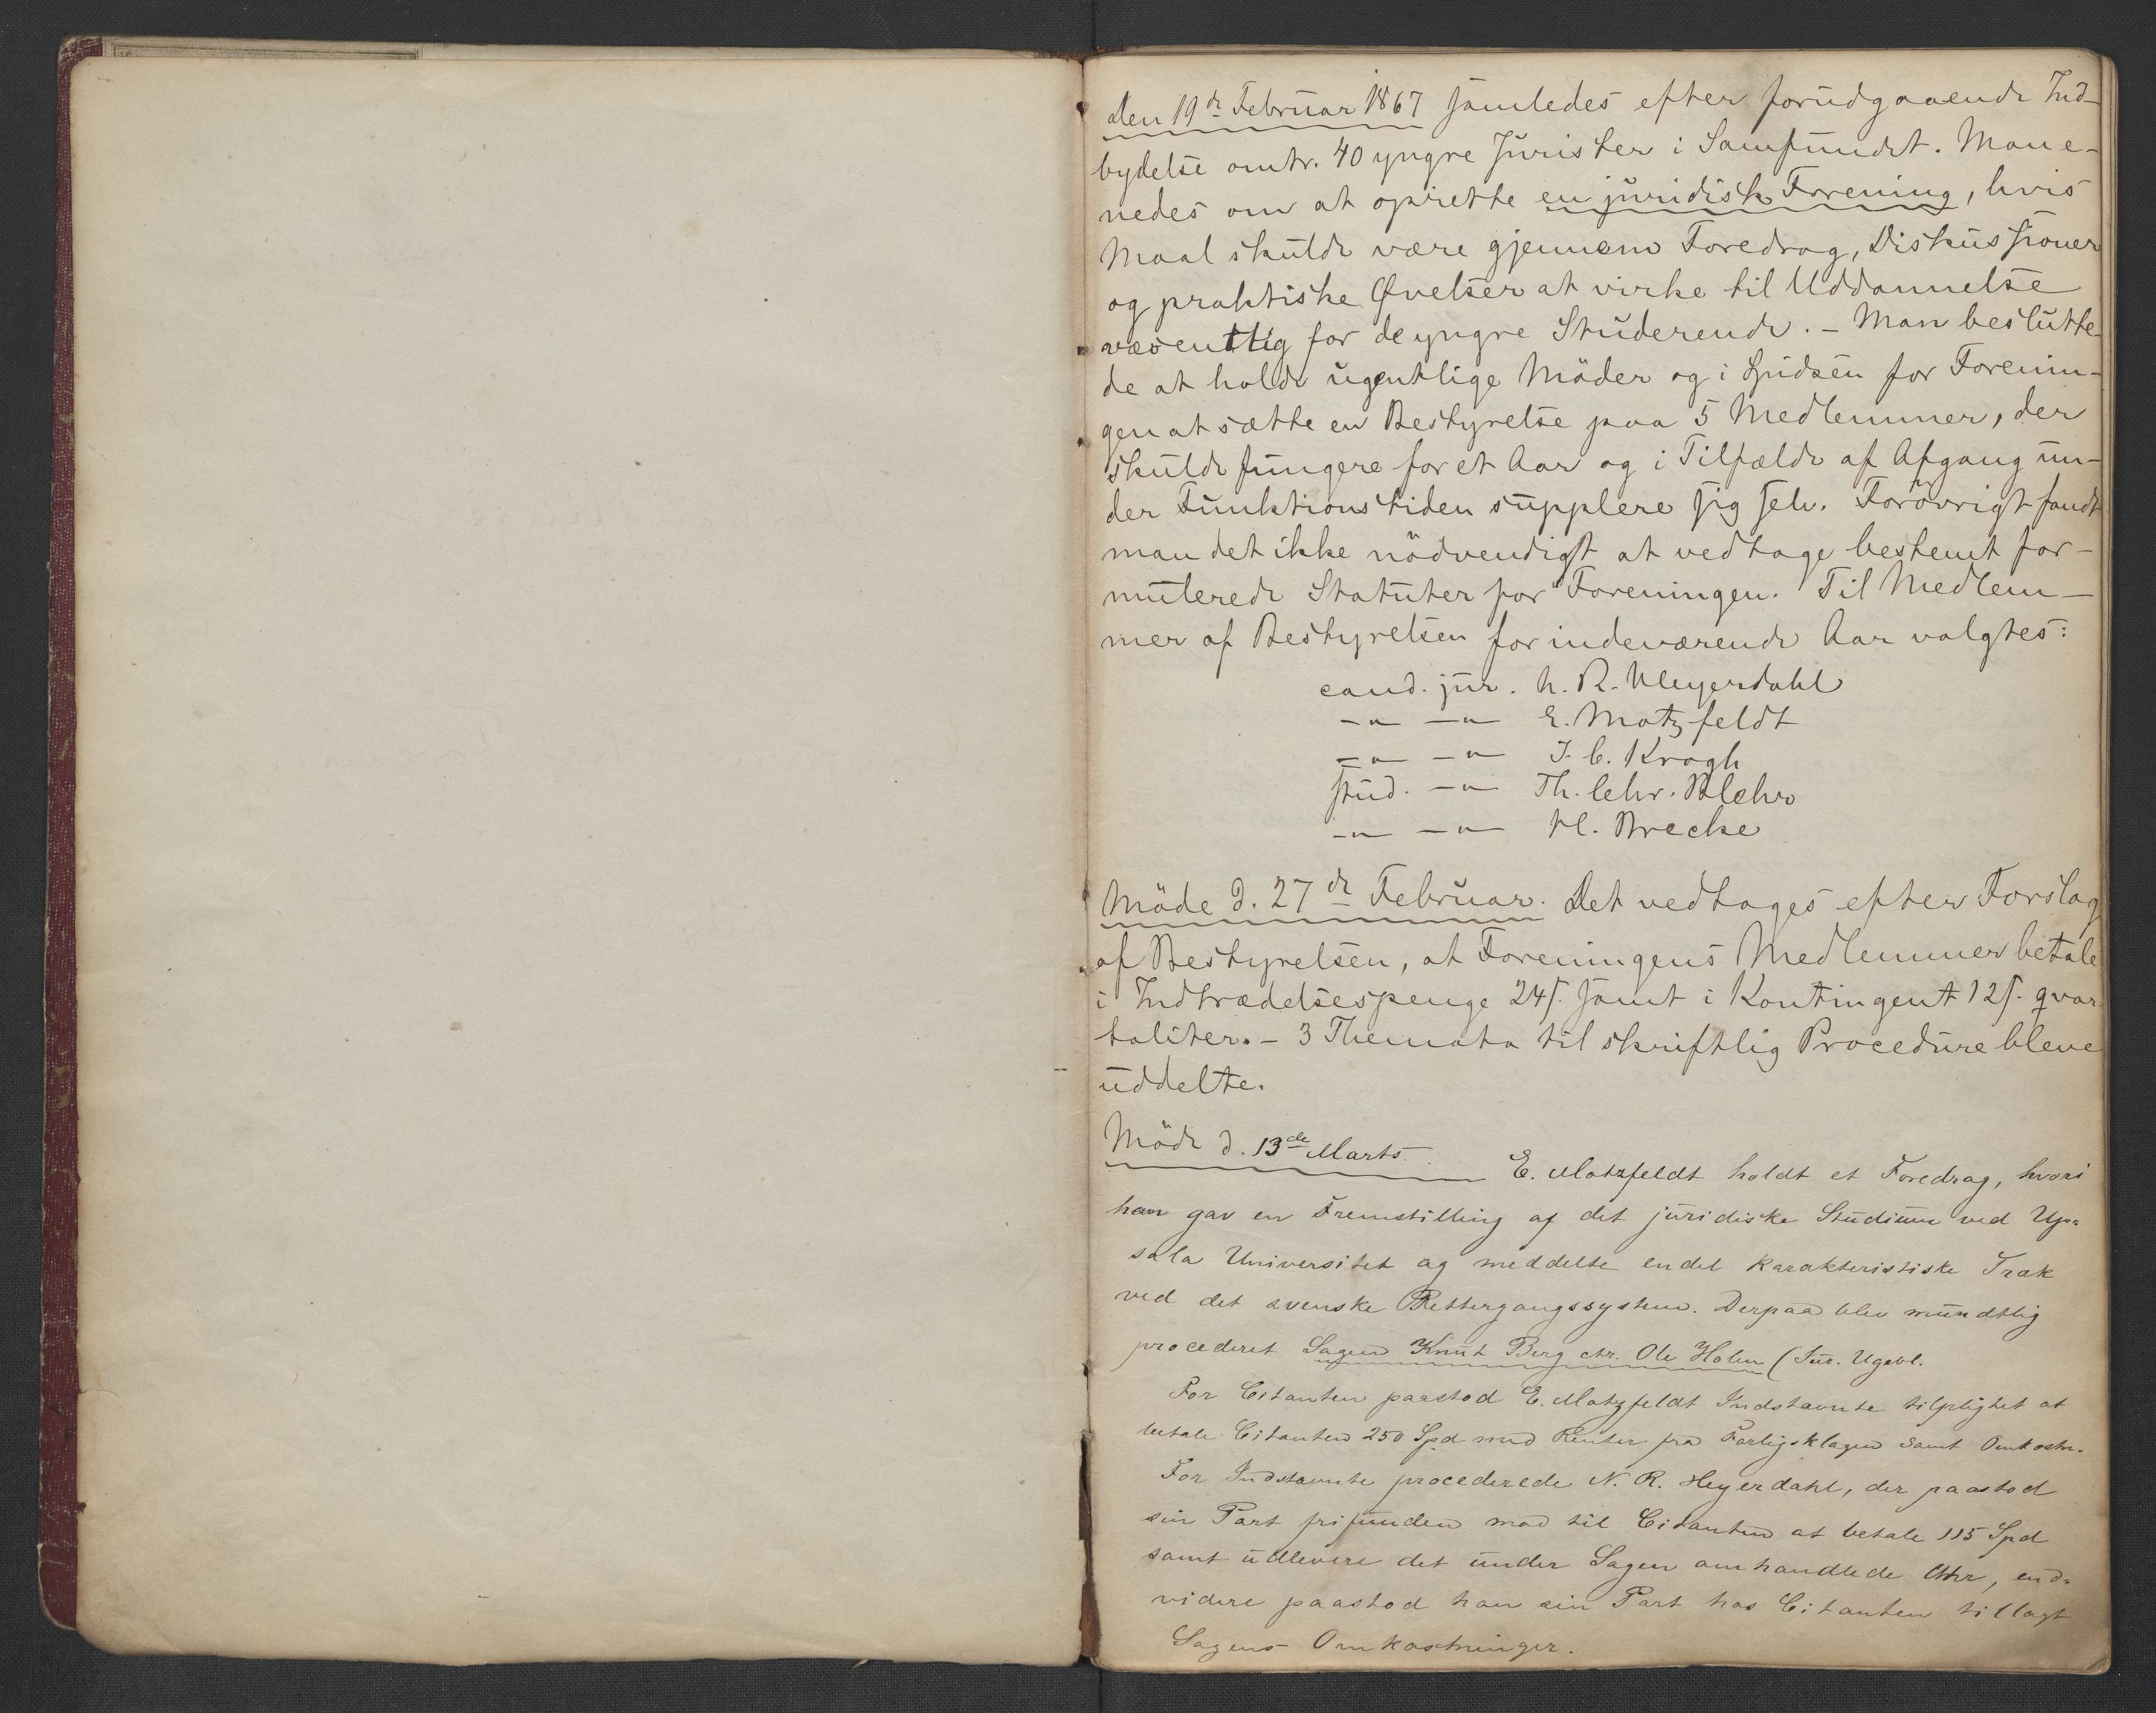 Den 19de Februar 1867 samledes efter forudgaaende Ind-
bydelse omtr. 40 yngre Jurister i Samfundet. Man e-
nedes om at oprette en juridisk Forening, hvis
Maal skulde være gjennem Foredrag, Diskussioner
og praktiske Øvelser at virke til Uddannelse
væsentlig for de yngre Studerende. – Man beslutte-
de at holde ugentlige Möder og i Spidsen for Forenin-
gen at sætte en Bestyrelse paa 5 Medlemmer, der
skulde fungere for et Aar og i Tilfælde af Afgang un-
der Funktionstiden supplere sig selv. Forövrigt fandt
man det ikke nödvendigt at vedtage bestemt for-
mulerede Statuter for Foreningen. Til Medlem-
mer af Bestyrelsen for indeværende Aar valgtes:
cand. jur. N. R. Heyerdahl
–"– –"– E. Motzfeldt
–"– –"– J. C. Krogh
stud. –"– Th. Chr. Blehr
–"– –"– H. Brecke
Möde d. 27de Februar. Det vedtages efter Forslag
af Bestyrelsen, at Foreningens Medlemmer betale
i Indtrædelsespenge 24 s. samt i Kontingent 12 s. qvar
taliter. – 3 Themata til skriftlig Procedure bleve
uddelte.
Möde d. 13de Marts. E. Motzfeldt holdt et Foredrag, hvori
han gav en Fremstilling af det juridiske Studium ved Up-
sala Universitet og meddelte endel karakteristiske Træk
ved det svenske Rettergangssystem. Derpaa blev mundtlig
procederet Sagen Knut Berg ctr. Ole Holen (Jur. Ugebl.
For Citanten paastod E. Motzfeldt Indstævnte tilpligtet at
betale Citanten 250 Spd med Renter fra Forligsklagen samt Omkostn.
For Indstævnte procederede N. R. Heyerdahl, der paastod
sin Part frifunden mod til Citanten at betale 115 Spd
samt udlevere det under Sagen omhandlede Uhr, end-
videre paastod han sin Part hos Citanten tillagt
Sagens Omkostninger.